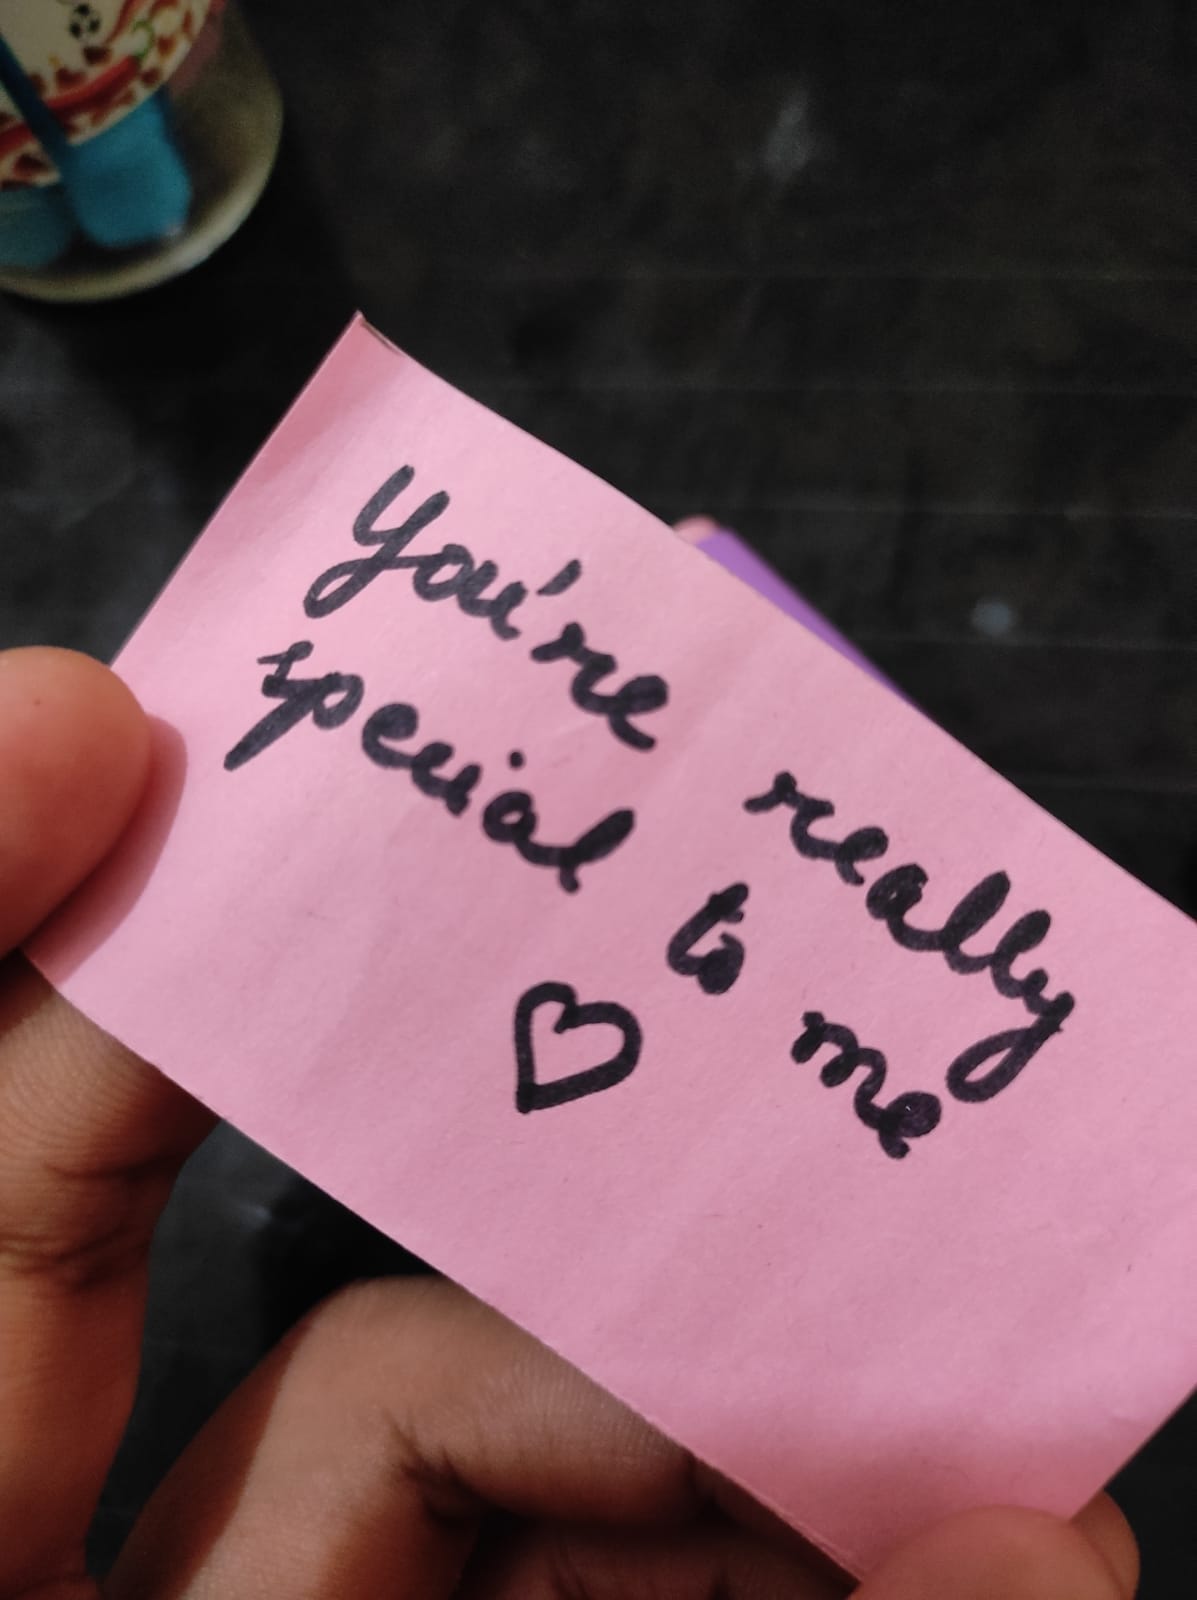 You're really
special to me
♡